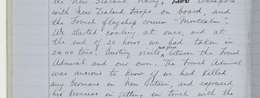 the New Zealand Navy,
with New Zealand troops on board, and
the French flagship cruiser "Montcalm".
We started coaling at once, and at
the end of 30 hours we had taken in
tons. Visiting between the French
Admiral and our own. The French
was anxious to know if we had killed
any Germans on our return, and expressed
his in getting in touch with the